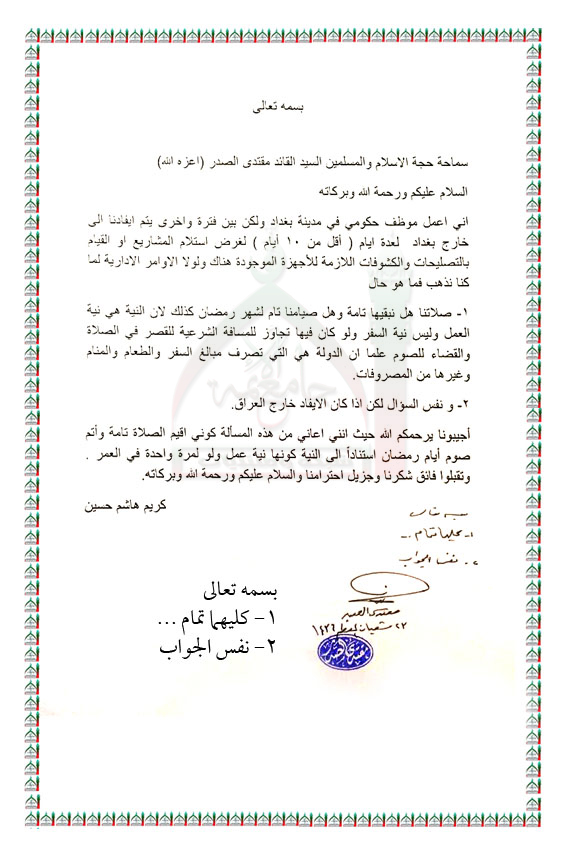 بسمه تعالى
سماحة حجة الاسلام والمسلمين السيد القائد مقتدى الصدر (اعزه الله)
السلام عليكم ورحمة الله وبركاته
اني اعمل موظف حكومي في مدينة بغداد ولكن بين فترة واخرى يتم ايفادنا الى
خارج بغداد لعدة ايام ( أقل من ١٠ أيام ) لغرض استلام المشاريع او القيام
بالتصليحات والكشوفات اللازمة للأجهزة الموجودة هناك ولولا الاوامر الادارية لما
كنا نذهب فما هو حال
١- صلاتنا هل نبقيها تامة وهل صيامنا تام لشهر رمضان كذلك لان النية هي نية
العمل وليس نية السفر ولو كان فيها تجاوز للمسافة الشرعية للقصر في الصلاة
والقضاء للصوم علما ان الدولة هي التي تصرف مبالغ السفر والطعام والمنام
وغيرها من المصروفات.
٢- و نفس السؤال لكن اذا كان الايفاد خارج العراق.
أجيبونا يرحمكم الله حيث انني اعاني من هذه المسألة كوني اقيم الصلاة تامة وأتم
صوم أيام رمضان استناداً الى النية كونها نية عمل ولو لمرة واحدة في العمر .
وتقبلوا فائق شكرنا وجزيل احترامنا والسلام عليكم ورحمة الله وبركاته.
كريم هاشم حسين
بسمه تعالى
١- كليهما تمام ...
٢- نفس الجواب
مقتدى الصدر
٢٢ شعبان المعظم ١٤٣٦
بسمه تعالى
١- كليهما تمام ...
٢- نفس الجواب